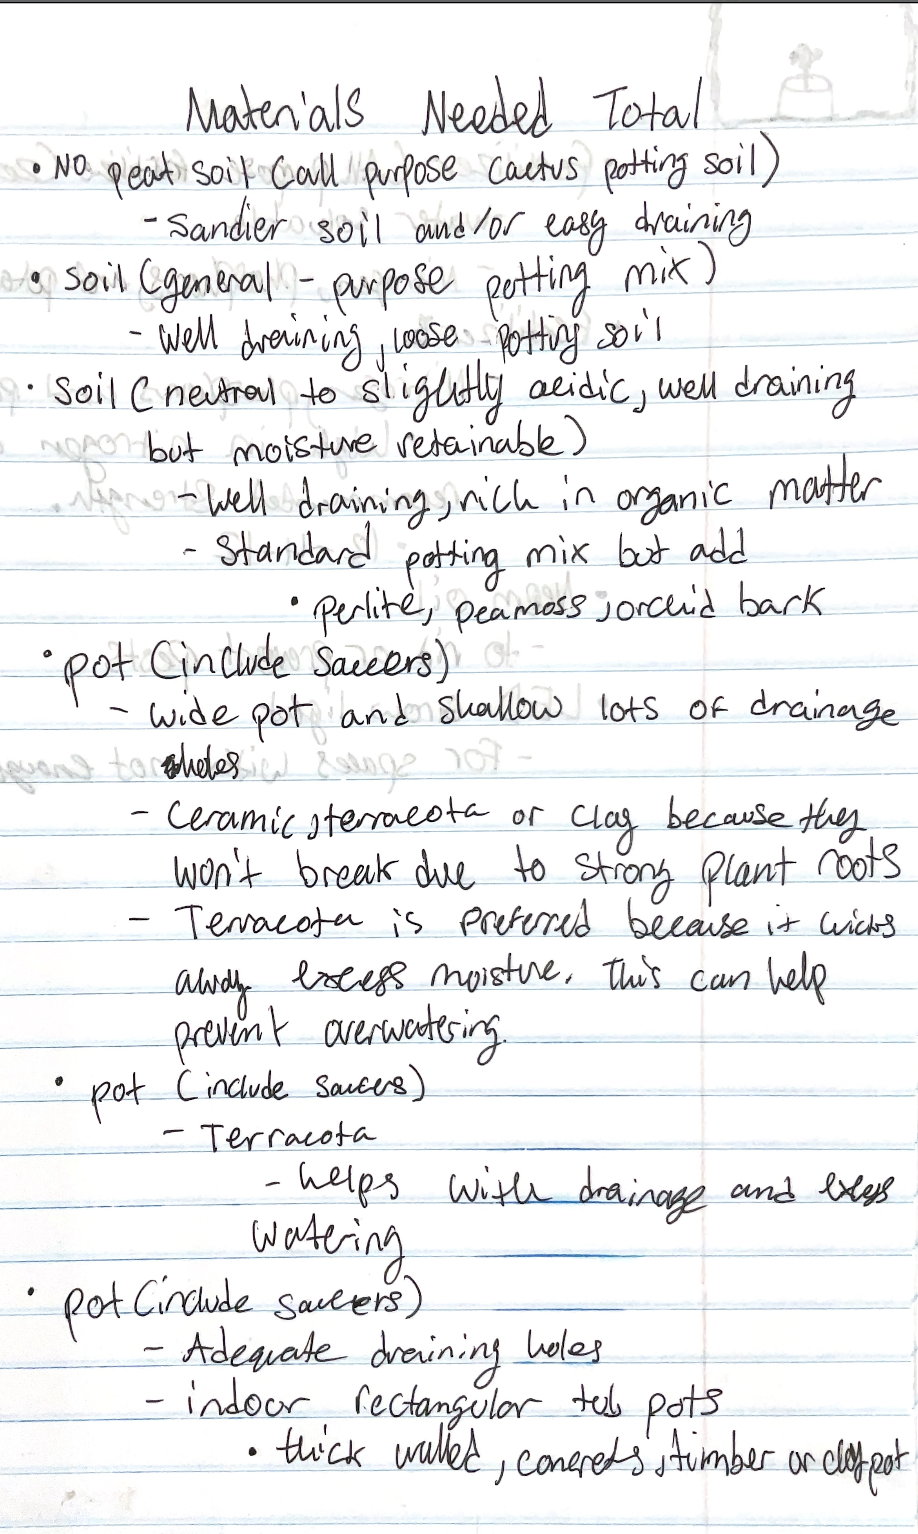 Materials Needed Total
• NO peat soil (all purpose cactus potting soil)
- Sandier soil and/or easy draining
• soil (general - purpose potting mix)
- Well draining, loose potting soil
• soil (neutral to slightly acidic, well draining
but moisture retainable)
- Well draining, rich in organic matter
- Standard potting mix but add
• perlite, peamoss, orchid bark
• pot (include saucers)
- wide pot and shallow lots of drainage
holes
- Ceramic, terracota or clay because they
won't break due to strong plant roots
- Terracota is preferred because it wicks
away excess moisture. This can help
prevent overwatering.
• pot (include saucers)
- Terracota
- helps with drainage and excess
watering
• pot (include saucers)
- Adequate draining holes
- indoor rectangular tub pots
• thick walled, concrete, timber or clay pot